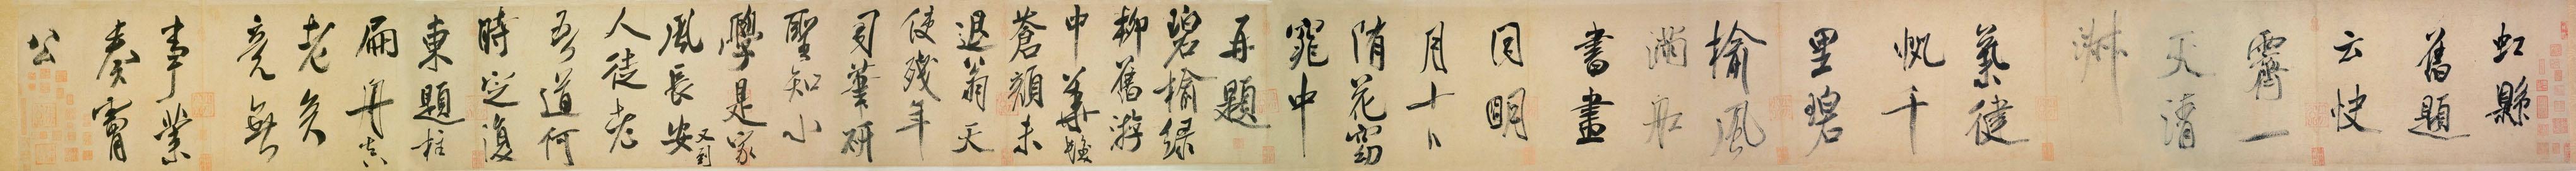 虹縣
舊題
云快
霽一
天清
淑
氣健
帆千
里碧
榆風
滿舩
書畫
同明
月十日
隋花窈
窕中
再題
碧榆綠
柳舊游
中華髮
蒼顏未
退翁天
使殘年
司筆研
聖知小
學是家
風長安又到
人徒老
吾道何
時定復
東題柱
扁舟真
老矣
竟無
事業
奏膚
公